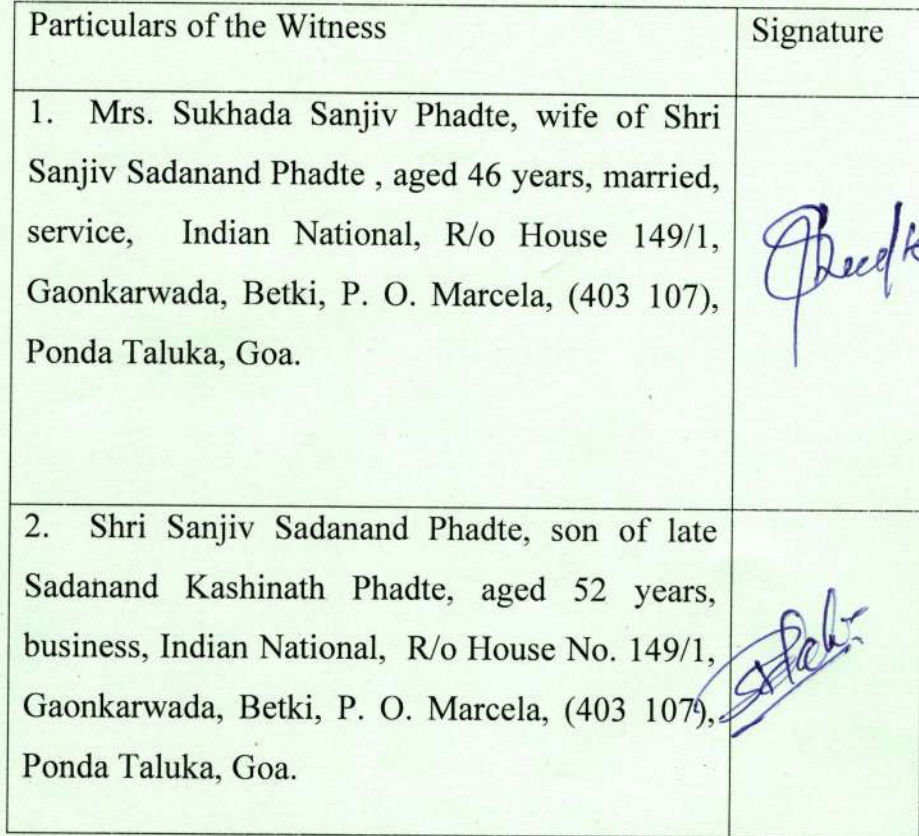 Particulars of the Witness
Signature
1. Mrs. Sukhada Sanjiv Phadte, wife of Shri
Sanjiv Sadanand Phadte , aged 46 years, married,
service, Indian National, R/o House 149/1,
Gaonkarwada, Betki, P. O. Marcela, (403 107),
Ponda Taluka, Goa.
2. Shri Sanjiv Sadanand Phadte, son of late
Sadanand Kashinath Phadte, aged 52 years,
business, Indian National, R/o House No. 149/1,
Gaonkarwada, Betki, P. O. Marcela, (403 107),
Ponda Taluka, Goa.